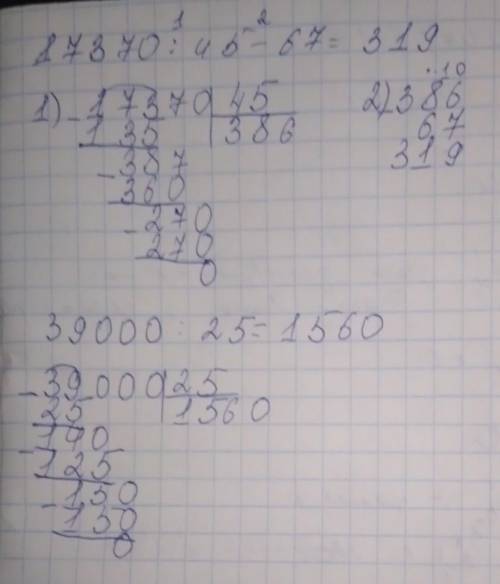 1 2
17370 : 45 - 67 = 319
1) - 17370 | 45
135 | 386
- 387
360
- 270
270
0
· 10
2) 386
67
319
39000 : 25 = 1560
- 39000 | 25
25 | 1560
- 140
125
- 150
150
0